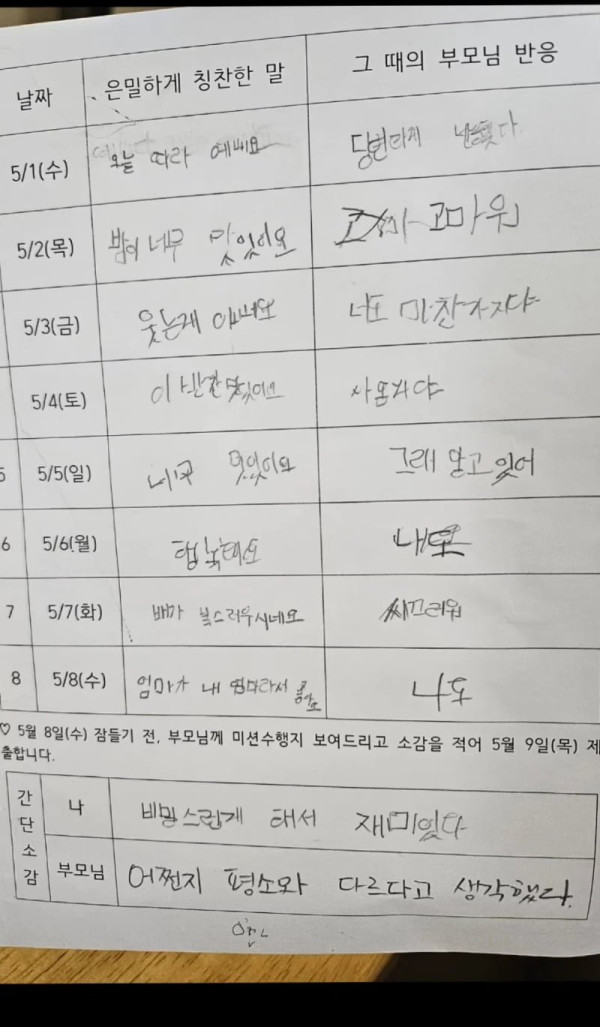 날짜 은밀하게 칭찬한 말 그 때의 부모님 반응
5/1(수) 오늘 따라 예뻐요 당연하게
5/2(목) 밥이 너무 맛있어요 고마워
5/3(금) 웃는게 너도 마찬가지야
5/4(토) 이 맛있어요
5 5/5(일) 멋있어요 그래 알고 있어
6 5/6(월) 행복해요 내도
7 5/7(화) 배가 복스러우시네요 씨끄러워
8 5/8(수) 엄마가 내 엄마라서 좋아요 나도
♡ 5월 8일(수) 잠들기 전, 부모님께 미션수행지 보여드리고 소감을 적어 5월 9일(목) 제
출합니다.
간단소감
나 비밀스럽게 해서 재미있다
부모님 어쩐지 평소와 다르다고 생각했다.